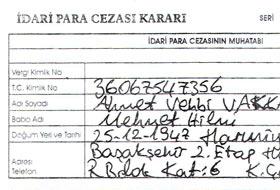 İDARİ PARA CEZASI KARARI SERİ
İDARİ PARA CEZASININ MUHATABI
Vergi Kimlik No
T.C. Kimlik No 36067547356
Adı Soyadı Ahmet Vehbi VAKK
Baba Adı Mehmet Hilmi
Doğum Yeri ve Tarihi 25-12-1947
Başakşehir 2. Etap
Adresi
Telefon R Blok Kat: 6